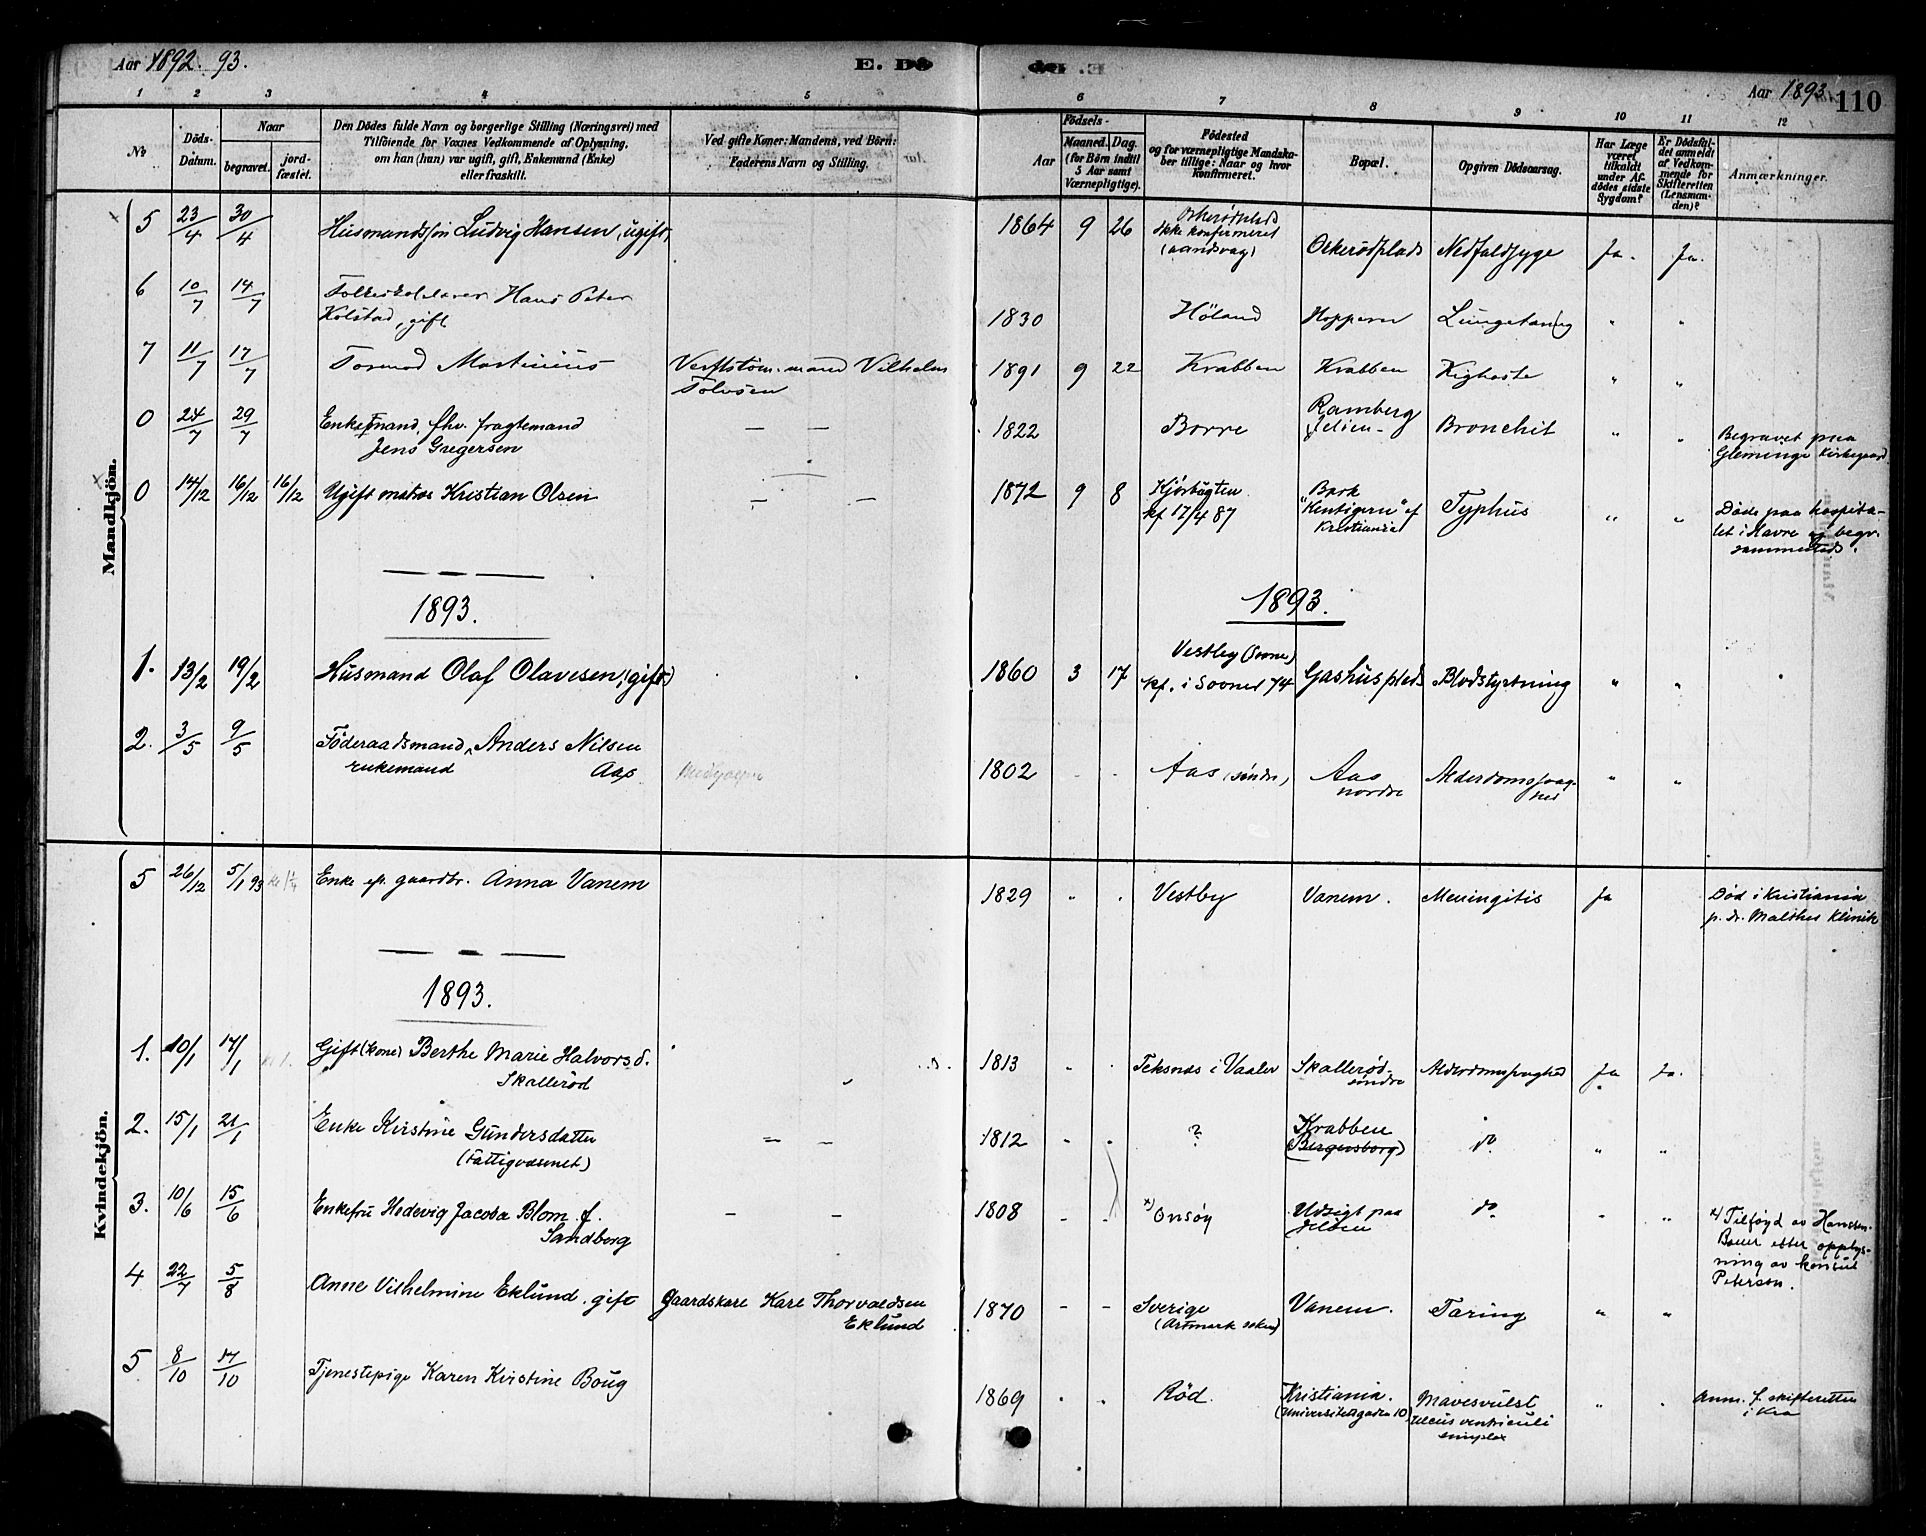 Aar 1892. 93.
E. Dö
Aar 1893.
110
1 2 3 4 5 6 7 8 9 10 11 12
No
Döds-
Datum.
Naar
begravet.
jord-
fæstet.
Den Dödes fulde Navn og borgerlige Stilling (Næringsvei) med
Tilföiende for Voxnes Vedkommende af Oplysning,
om han (hun) var ugift, gift, Enkemand (Enke)
eller fraskilt.
Ved gifte Koner: Mandens, ved Börn:
Faderens Navn og Stilling.
Födsels-
Aar
Maaned. Dag.
(for Börn indtil
5 Aar samt
Værnepligtige).
Födested
og for værnepligtige Mandska-
ber tillige: Naar og hvor
konfirmeret.
Bopæl.
Opgiven Dödsaarsag.
Har Læge
været
tilkaldt
under Af-
dödes sidste
Sygdom?
Er Dödsfal-
det anmeldt
af Vedkom-
mende for
Skifteretten
(Lensman-
den)?
Anmærkninger.
Mandkjön.
5 23/4 30/4 Husmandssön Ludvig Hansen, ugift, 1864 9 26 Oskerödplads
Ikke konfirmeret
(aandsvag) Oskerödplads Nedfaldsyge Ja. Ja.
6 10/7 14/7 Folkeskolelærer Hans Peter
Kolstad, gift 1830 Höland Hoppern " "
7 11/7 17/7 Tormod Martinius Verftstöm.mand Vilhelm
1891 9 22 Krabben Krabben Kighoste " "
0 24/7 29/7 Enkemand, fhv. fragtemand
Jens Gregersen — — 1822 Borre Ramberg
Jelöen Bronchit " " Begravet paa
Glemminge Kirkegaard
0 14/12 16/12 16/12 Ugift matros Kristian Olsen — — 1872 9 8
kf 17/4 87 Bark
"Kentigern" af
Kristiania Typhus " " Döde paa hospita-
let i Havre og begr.
sammesteds.
1893.
1893.
1. 13/2 19/2 Husmand Olaf Olavesen, (gift) 1860 3 17 Vestby (Sovner)
kf. i Sovner 74 Gashusplads Blodstyrtning " "
2. 3/5 9/5 Föderaadsmand, Anders Nilsen
enkemand Aas 1802 Aas (söndre) Aas
nordre Alderdomssvag-
hed " "
Kvindekjön.
5 26/12 5/1 93 Enke eft. gaardbr. Anna Vanem 1829 " " Vestby Vanem. Meningitis Ja Död i Kristiania
p. dr. Malthes Klinik
1893.
1. 10/1 17/1 Gift (kone) Berthe Marie Halvorsd.
Skalleröd 1813 " " Teksnæs i Vaaler Skalleröd
söndre Alderdomssvaghed Ja Ja.
2. 15/1 21/1 Enke Kirstine Gundersdatter
(Fattigvæsenet) — — 1812 ? Krabben
(Bergersborg) do " "
3. 10/6 15/6 Enkefru Hedevig Jacoba Blom f.
Sandborg — — 1808 x) Onsöy Udsigt paa
Jelöen do " " x) Tilföyd av Hansten-
Bauer etter opplys-
ning av konsul
Peterson.
4 22/7 5/8 Anne Vilhelmine Eklund, gift Gaardskarl Karl Thorvaldsen
Eklund 1870 - - Sverige
(Artmark soken) Vanem. Tæring " "
5 8/10 17/10 Tjenestepige Karen Kirstine Boug 1869 " " Röd. Kristiania.
(Universitetsgaden 10) Mavesvulst
Ulcus ventriculi
simplex " " Anm. f. skifteretten
i Kra